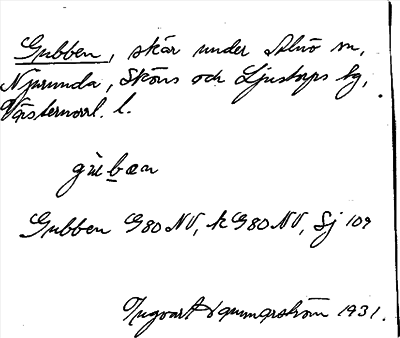 Gubben, skär under Alnö sn,
Njurunda, Sköns och Ljustorps tg,
Västernorrl. l.
Gubben G80 NV, k G80 NV, Sj 109
Ingvart 1931.